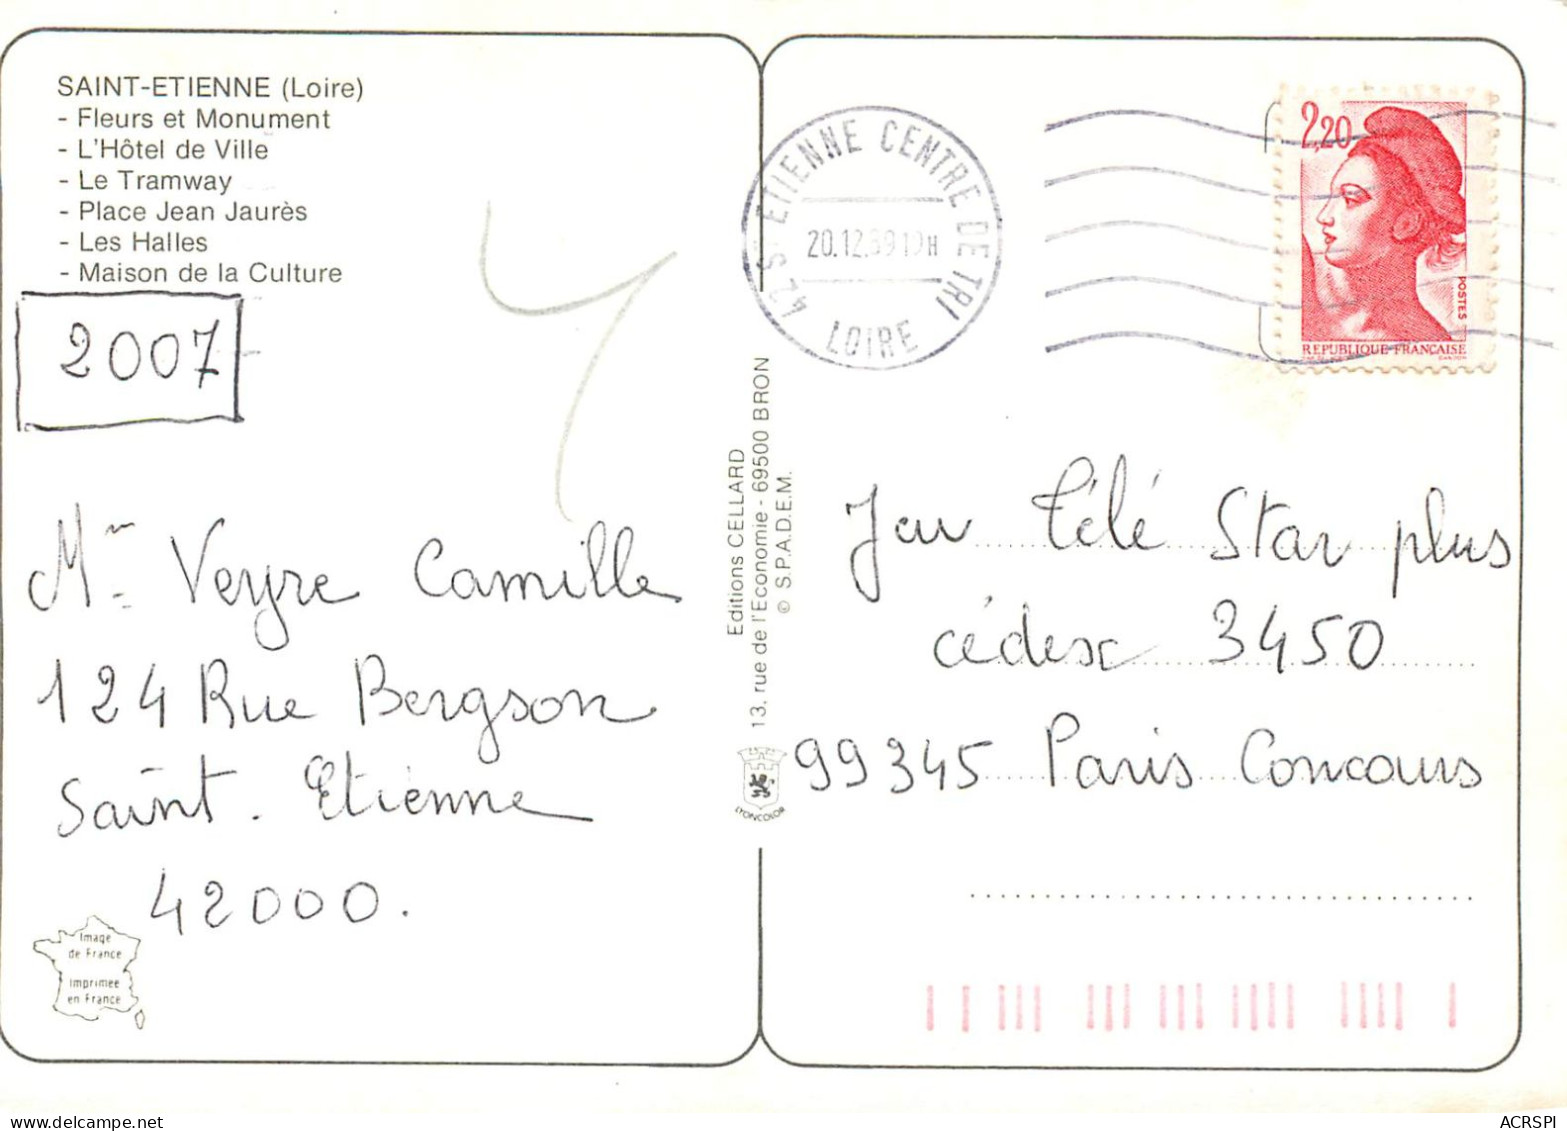 SAINT-ETIENNE (Loire)
- Fleurs et Monument
- L'Hôtel de Ville
- Le Tramway
- Place Jean Jaurès
- Les Halles
- Maison de la Culture
2007
Mme Veyre Camille
124 Rue Bergson
Saint. Etienne
42000.
Image
de France
Imprimée
en France
Editions CELLARD
13, rue de l'Economie - 69500 BRON
© S.P.A.D.E.M.
LYONCOLOR
42 ST ETIENNE CENTRE DE TRI
20.12.89 19H
LOIRE
2,20
POSTES
REPUBLIQUE FRANÇAISE
Jeu Télé Star plus
cédex 3450
99345 Paris Concours
ACRSPI